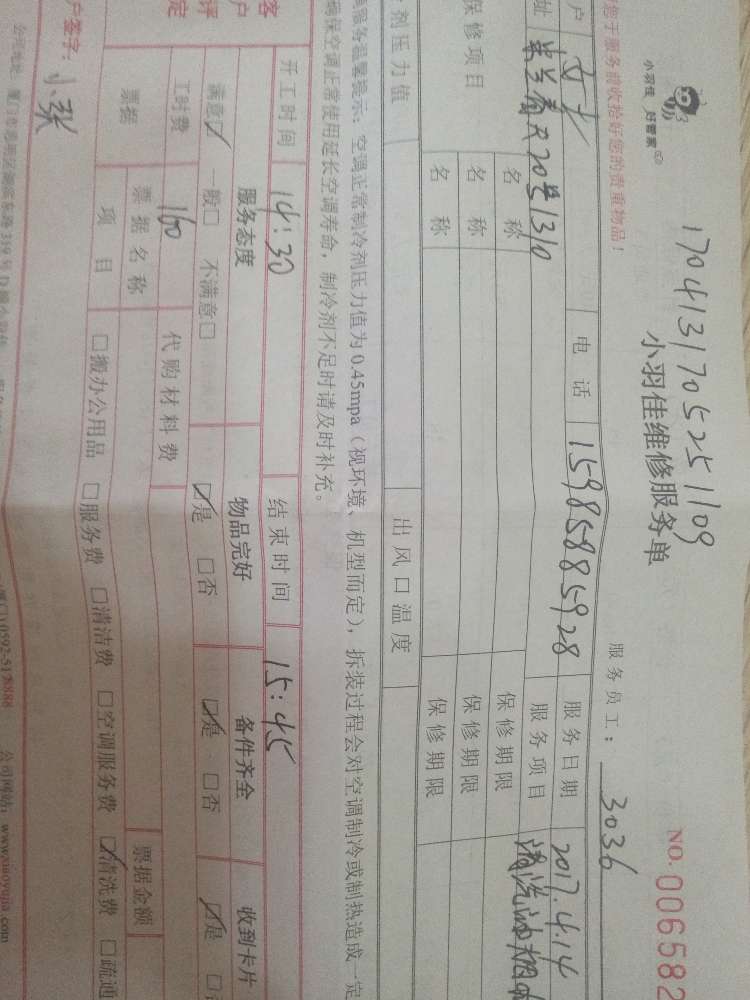 170413170525 1109
小羽佳 好管家
小羽佳维修服务单
NO. 006582
您于服务前收拾好您的贵重物品！
服务员工：3036
户
电话 15985885928 服务日期 2017.4.14
址 20号1310 服务项目 清洗油烟
保修项目 名称 保修期限
名称 保修期限
名称 保修期限
剂压力值 出风口温度
服务温馨提示：空调正常制冷剂压力值为0.45mpa（视环境、机型而定），拆装过程会对空调制冷或制热造成一定
确保空调正常使用延长空调寿命，制冷剂不足时请及时补充。
开工时间 14:30 结束时间 15:45
客户评定
服务态度 物品完好 备件齐全 收到卡片
满意☑ 一般□ 不满意□ ☑是 □否 ☑是 □否 ☑是
工时费 160 代购材料费
票据 票据名称 票据金额
项目 □搬办公用品 □服务费 □清洁费 □空调服务费 ☑清洗费 □疏通
户签字：小张
公司网站：www.xiaoyujia.com